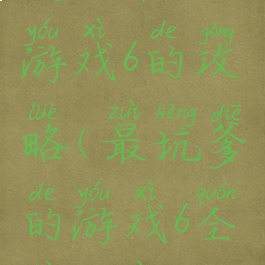 yóu xì de gōng
游戏6的攻
lüè zuì kēng diē
略(最坑爹
de yóu xì quán
的游戏6全